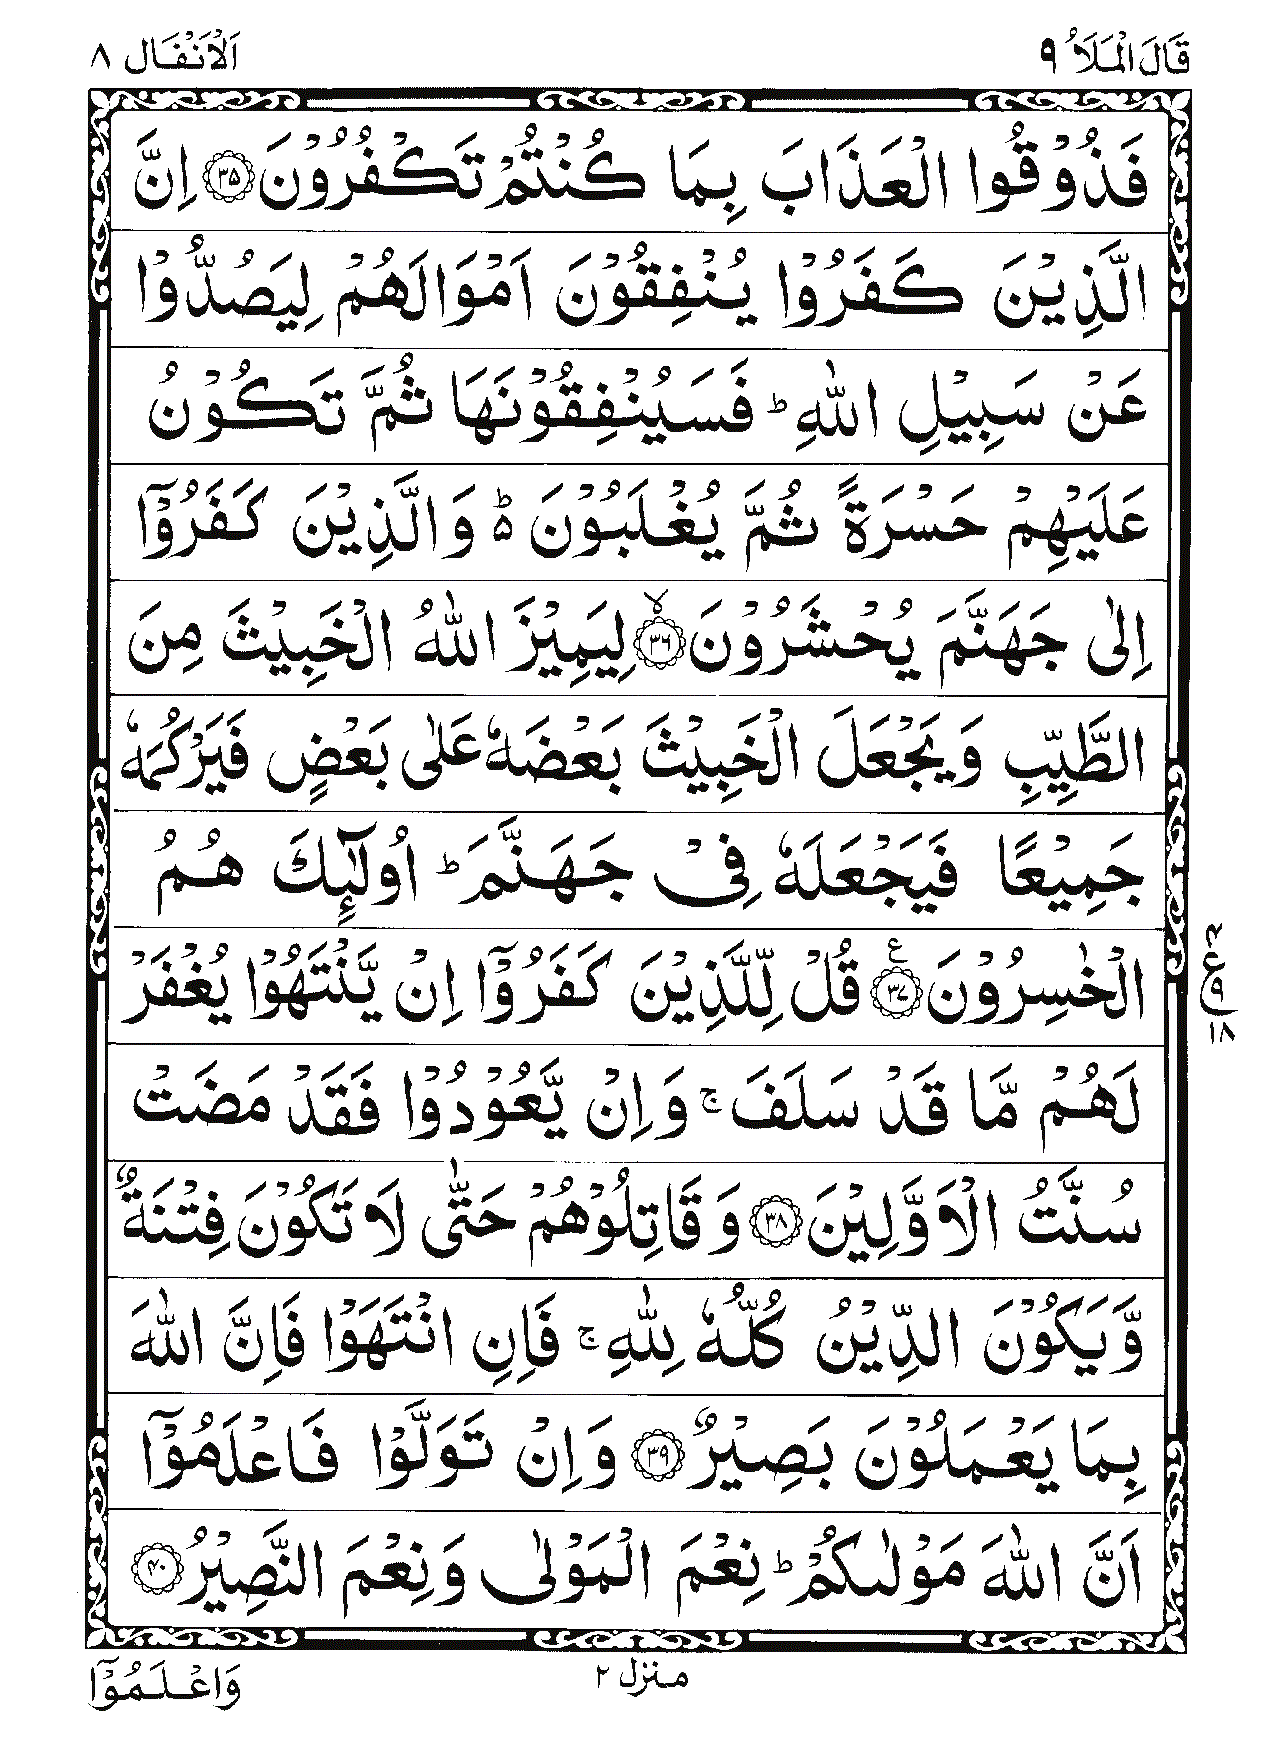 قَالَ الْمَلَاُ ۹
اَلْاَنْفَال ۸
فَذُوْقُوا الْعَذَابَ بِمَا كُنْتُمْ تَكْفُرُوْنَ ۳۵ اِنَّ
الَّذِيْنَ كَفَرُوْا يُنْفِقُوْنَ اَمْوَالَهُمْ لِيَصُدُّوْا
عَنْ سَبِيْلِ اللّٰهِ ؕ فَسَيُنْفِقُوْنَهَا ثُمَّ تَكُوْنُ
عَلَيْهِمْ حَسْرَةً ثُمَّ يُغْلَبُوْنَ ۬ؕ وَالَّذِيْنَ كَفَرُوْۤا
اِلٰى جَهَنَّمَ يُحْشَرُوْنَ ۙ۳۶ لِيَمِيْزَ اللّٰهُ الْخَبِيْثَ مِنَ
الطَّيِّبِ وَيَجْعَلَ الْخَبِيْثَ بَعْضَهٗ عَلٰى بَعْضٍ فَيَرْكُمَهٗ
جَمِيْعًا فَيَجْعَلَهٗ فِيْ جَهَنَّمَ ؕ اُولٰٓئِكَ هُمُ
الْخٰسِرُوْنَ ۳۷ ع قُلْ لِّلَّذِيْنَ كَفَرُوْۤا اِنْ يَّنْتَهُوْا يُغْفَرْ
۲ ع ۹ ۱۸
لَهُمْ مَّا قَدْ سَلَفَ ۚ وَاِنْ يَّعُوْدُوْا فَقَدْ مَضَتْ
سُنَّتُ الْاَوَّلِيْنَ ۳۸ وَقَاتِلُوْهُمْ حَتّٰى لَا تَكُوْنَ فِتْنَةٌ
وَّيَكُوْنَ الدِّيْنُ كُلُّهٗ لِلّٰهِ ۚ فَاِنِ انْتَهَوْا فَاِنَّ اللّٰهَ
بِمَا يَعْمَلُوْنَ بَصِيْرٌ ۳۹ وَاِنْ تَوَلَّوْا فَاعْلَمُوْۤا
اَنَّ اللّٰهَ مَوْلٰىكُمْ ؕ نِعْمَ الْمَوْلٰى وَنِعْمَ النَّصِيْرُ ۴۰
منزل ۲
وَاعْلَمُوْۤا